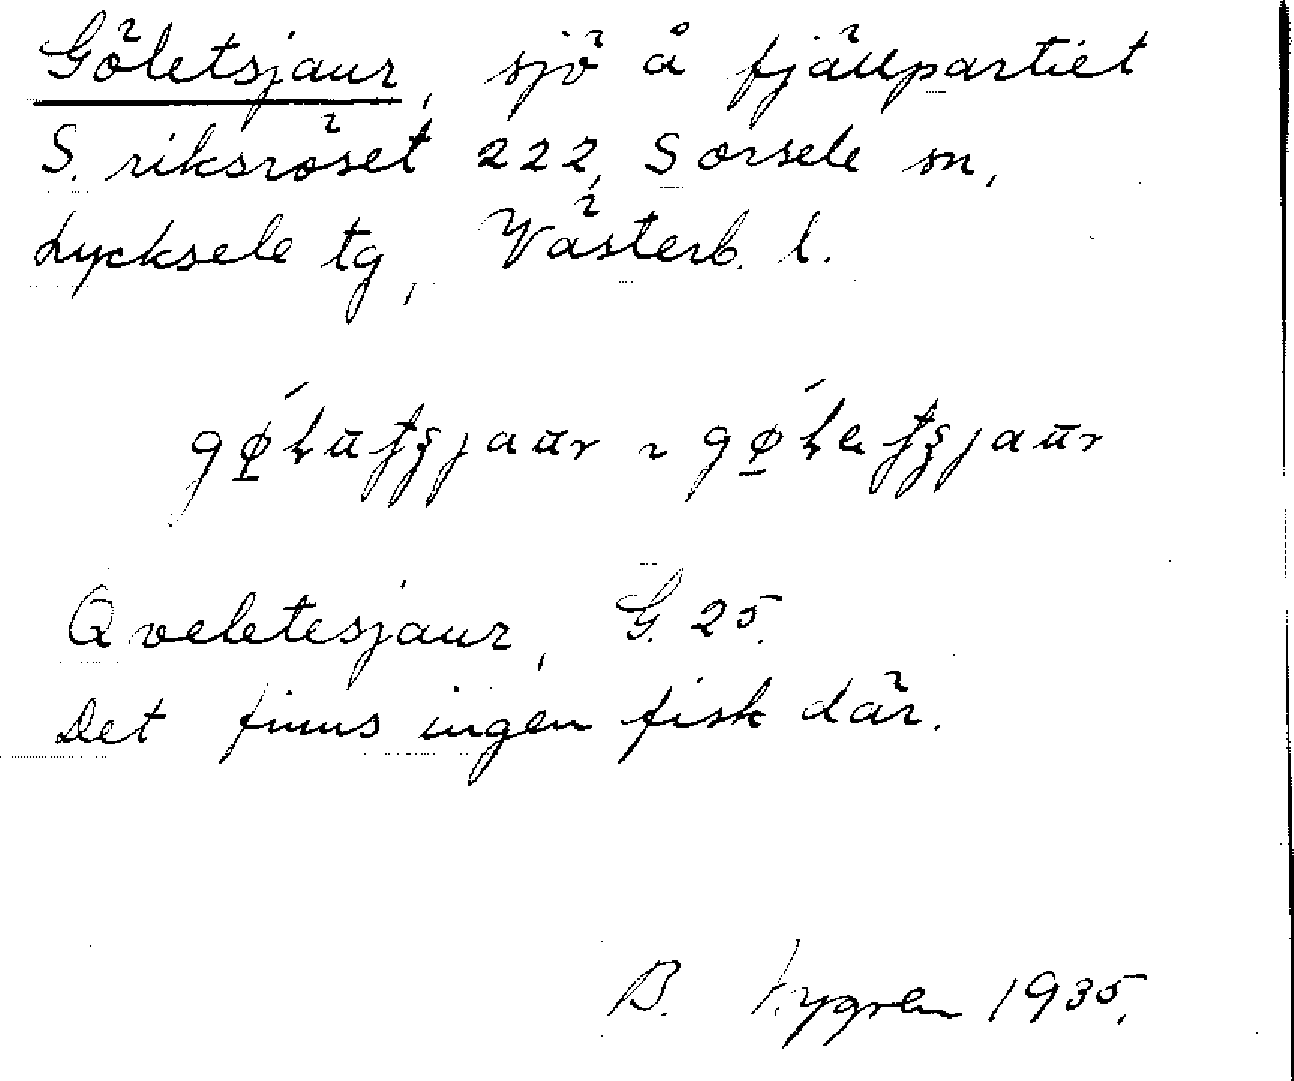 Göletsjaur, sjö å fjällpartiet
S. riksröset 222, Sorsele sn,
Lycksele tg, Västerb. l.
Qveletesjaur, G. 25.
Det finns ingen fisk där.
B. 1935.